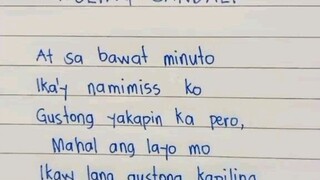 At sa bawat minuto
Ika'y namimiss ko
Gustong yakapin ka pero,
Mahal ang layo mo
Ikaw lang gustong kapiling